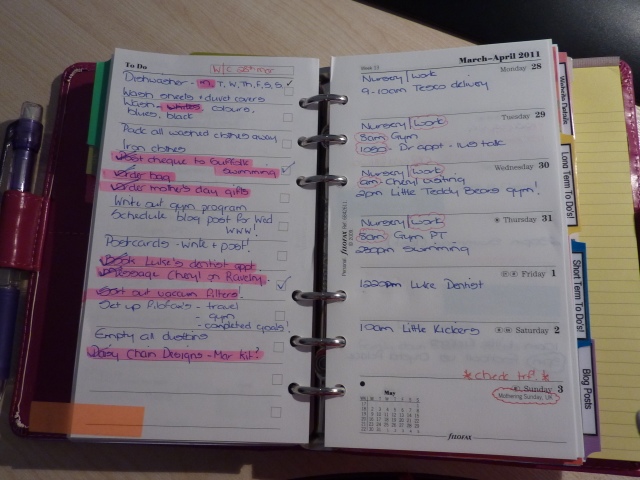 To Do
W/C 28th Mar
Dishwasher - M, T, W, Th, F, S, S
Wash sheets + duvet covers
Wash - whites, colours,
blues, black
Pack all washed clothes away
Iron clothes
Post cheque to Suffolk
swimming
Order bag
Order mother's day gifts
Write out gym program
Schedule blog post for Wed
WWW!
Postcards - write + post!
Book Luke's dentist appt.
Message Cheryl on Ravelry
Sort out vacuum filters!
Set up Filofax's - travel
- gym
- completed goals!
Empty all dustbins
Daisy Chain Designs - Mar kit?
March–April 2011
Week 13
Monday 28
Nursery / work
9-10am Tesco delivery
Tuesday 29
Nursery / work
8am Gym
1050 - Dr appt
Wednesday 30
Nursery / work
am - Cheryl visiting
2pm Little Teddy Bears gym!
Thursday 31
Nursery / work
8am Gym, PT
230pm Swimming
Friday 1
1220pm Luke Dentist
Saturday 2
10am Little Kickers
Sunday 3
Mothering Sunday, UK
May
filofax
filofax
Long Term To Do's!
Short Term To Do's!
Blog Posts